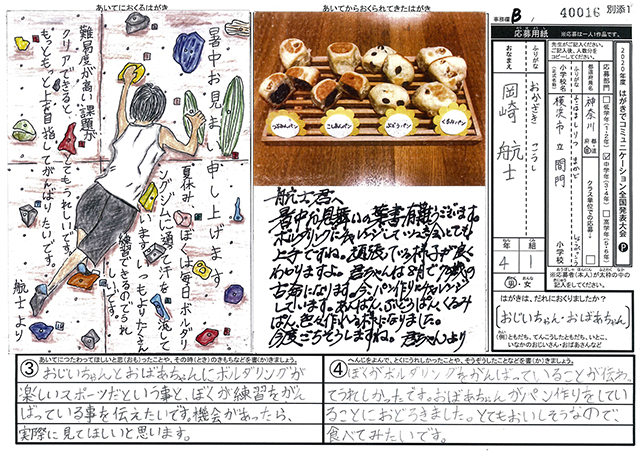 あいてにおくるはがき
暑中お見まい申し上げます
夏休み、ぼくは毎日ボルダリ
ングジムに通って汗を流して
います。いつもよりたくさん
練習できるのでうれ
しいです。
難易度が高い課題が
クリアできると、
とてもうれしいです。
もっともっと上を目指してがんばりたいです。
航士より
あいてからおくられてきたはがき
つぶあんパン
こしあんパン
ぶどうパン
くるみパン
航士君へ
暑中お見舞いの葉書有難うございます。
ボルダリングにチャレンジしていつ会っても
上手ですね。頑張っている様子が良く
わかりますよ。
今、パン作りにチャレンジ
しています。あんぱん、ぶどうぱん、くるみ
ぱん、色々作れる様になりました。
今度ごちそうしますね。 君ちゃんより
事務欄 B
40016
別添1
応募用紙
※応募は一人1作品です。
2020年度 はがきでコミュニケーション全国発表大会 P
応募部門
低学年(1・2年)
中学年(3・4年)
高学年(5・6年)
都道府県名
神奈川
クラス単位での応募
小学校名
横浜市立間門
小学校
ふりがな
おかざき こうし
おなまえ
岡崎 航士
年
組
4
1
男・女
※応募者(本人)が太枠の中の
記入をしてください。
はがきは、だれにおくりましたか?
おじいちゃん・おばあちゃん
(例)ともだち、てんこうしたともだち、いとこ、
いなかのおじいさん・おばあさんなど
③
あいてにつたわってほしいと思(おも)ったことや、その時(とき)のきもちなどを書(か)きましょう。
おじいちゃんとおばあちゃんにボルダリングが
楽しいスポーツだという事と、ぼくが練習をがん
ばっている事を伝えたいです。機会があったら、
実際に見てほしいと思います。
④
へんじをよんで、とくにうれしかったことや、そうぞうしたことなどを書(か)きましょう。
ぼくがボルダリングをがんばっていることが伝わっ
てうれしかったです。おばあちゃんがパン作りをしてい
ることにおどろきました。とてもおいしそうなので、
食べてみたいです。